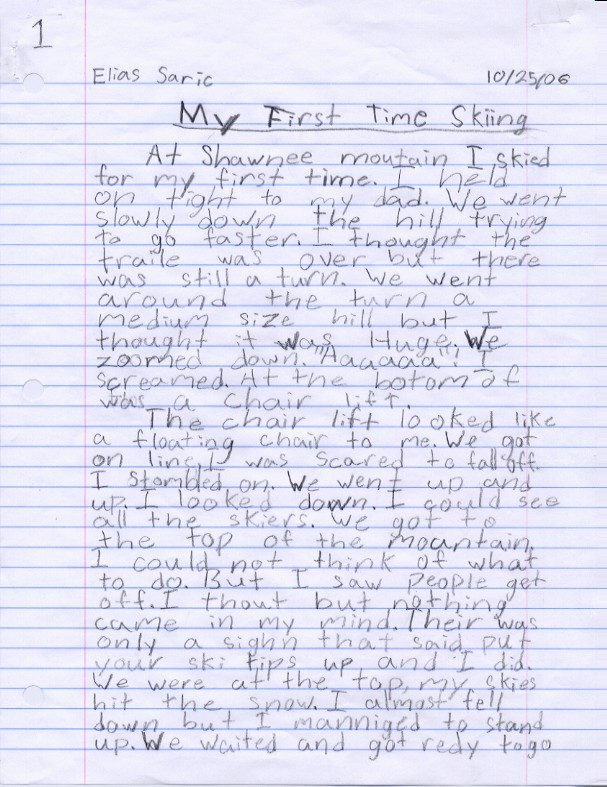 1
Elias Saric 10/25/06
My First Time Skiing
At Shawnee moutain I skied
for my first time. I held
on tight to my dad. We went
slowly down the hill trying
to go faster. I thought the
traile was over but there
was still a turn. We went
around the turn a
medium size hill but I
thought it was Huge. We
zoomed down. "Aaaaaa"! I
screamed. At the botom of
was a chair lift.
The chair lift looked like
a floating chair to me. We got
on line. I was scared to fall off.
I stombled on. We went up and
up. I looked down. I could see
all the skiers. We got to
the top of the mountain.
I could not think of what
to do. But I saw people get
off. I thout but nothing
came in my mind. Their was
only a sighn that said put
your ski tips up and I did.
We were at the top, my skies
hit the snow. I almost fell
down but I manniged to stand
up. We waited and got redy to go